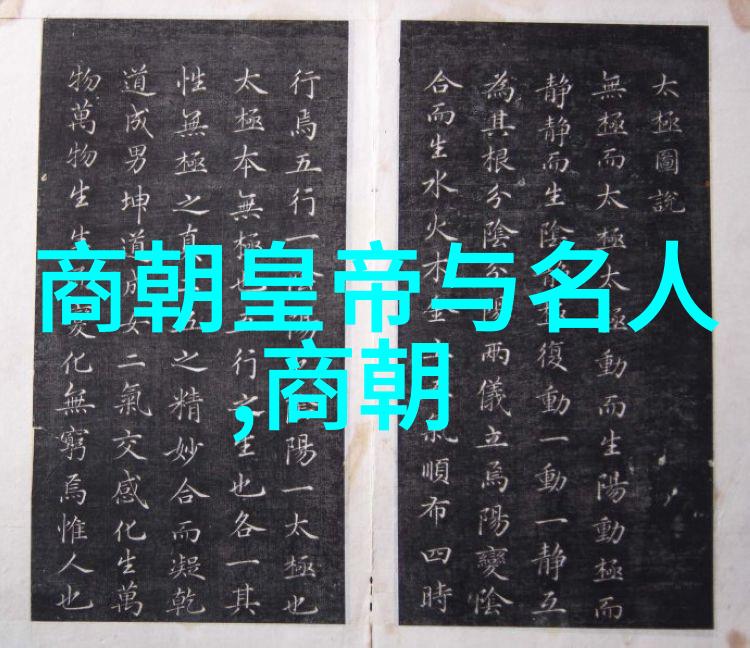 商朝皇帝与名人
,商朝
太極圖說
無極而太極太極動而生陽動極而
静静而生陰 復動一動一静互
為其根分陰分陽兩儀立焉陽變陰
合而生水火木金 順布四時
行焉五行一陰陽 陽一太極也
太極本無極也 行之生也各一其
性無極之真 五之精妙合而凝乾
道成男坤道成女二氣交感化生萬
物萬物生生 變化無窮焉惟人也